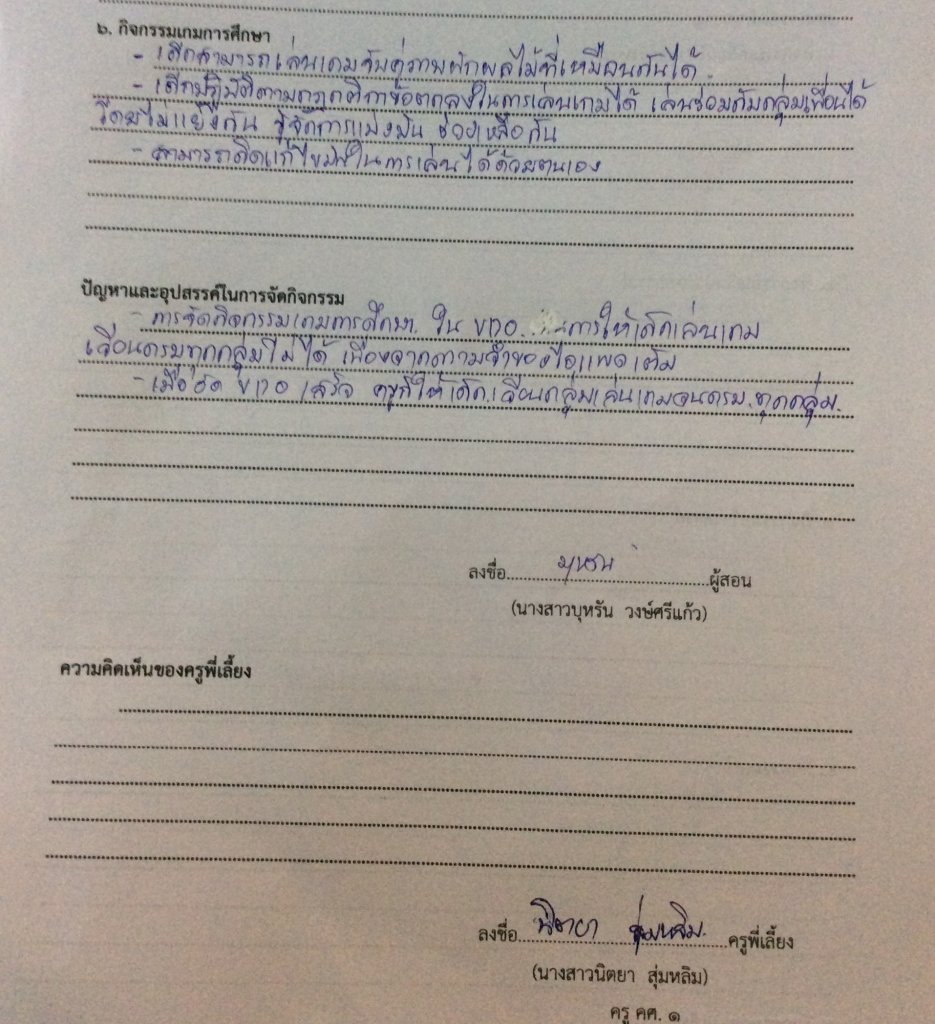 ๖. กิจกรรมเกมการศึกษา
- เด็กสามารถเล่นเกมจับคู่ภาพผักผลไม้ที่เหมือนกันได้
- เด็กปฏิบัติตามกฎกติกาข้อตกลงในการเล่นเกมได้ เล่นร่วมกับกลุ่มเพื่อนได้
โดยไม่แย่งกัน รู้จักการแบ่งปัน ช่วยเหลือกัน
- สามารถคิดแก้ไขในการเล่นได้ด้วยตนเอง
ปัญหาและอุปสรรคในการจัดกิจกรรม
- การจัดกิจกรรมเกมการศึกษา ใน การให้เด็กเล่นเกม
เวียนครบทุกกลุ่มไม่ได้ เนื่องจาก
- เมื่อ เสร็จ ครูก็ให้เด็กเวียนกลุ่มเล่นเกมจนครบทุกกลุ่ม
ลงชื่อ บุหรัน ผู้สอน
(นางสาวบุหรัน วงษ์ศรีแก้ว)
ความคิดเห็นของครูพี่เลี้ยง
ลงชื่อ นิตยา สุ่มหลิม ครูพี่เลี้ยง
(นางสาวนิตยา สุ่มหลิม)
ครู คศ. ๑